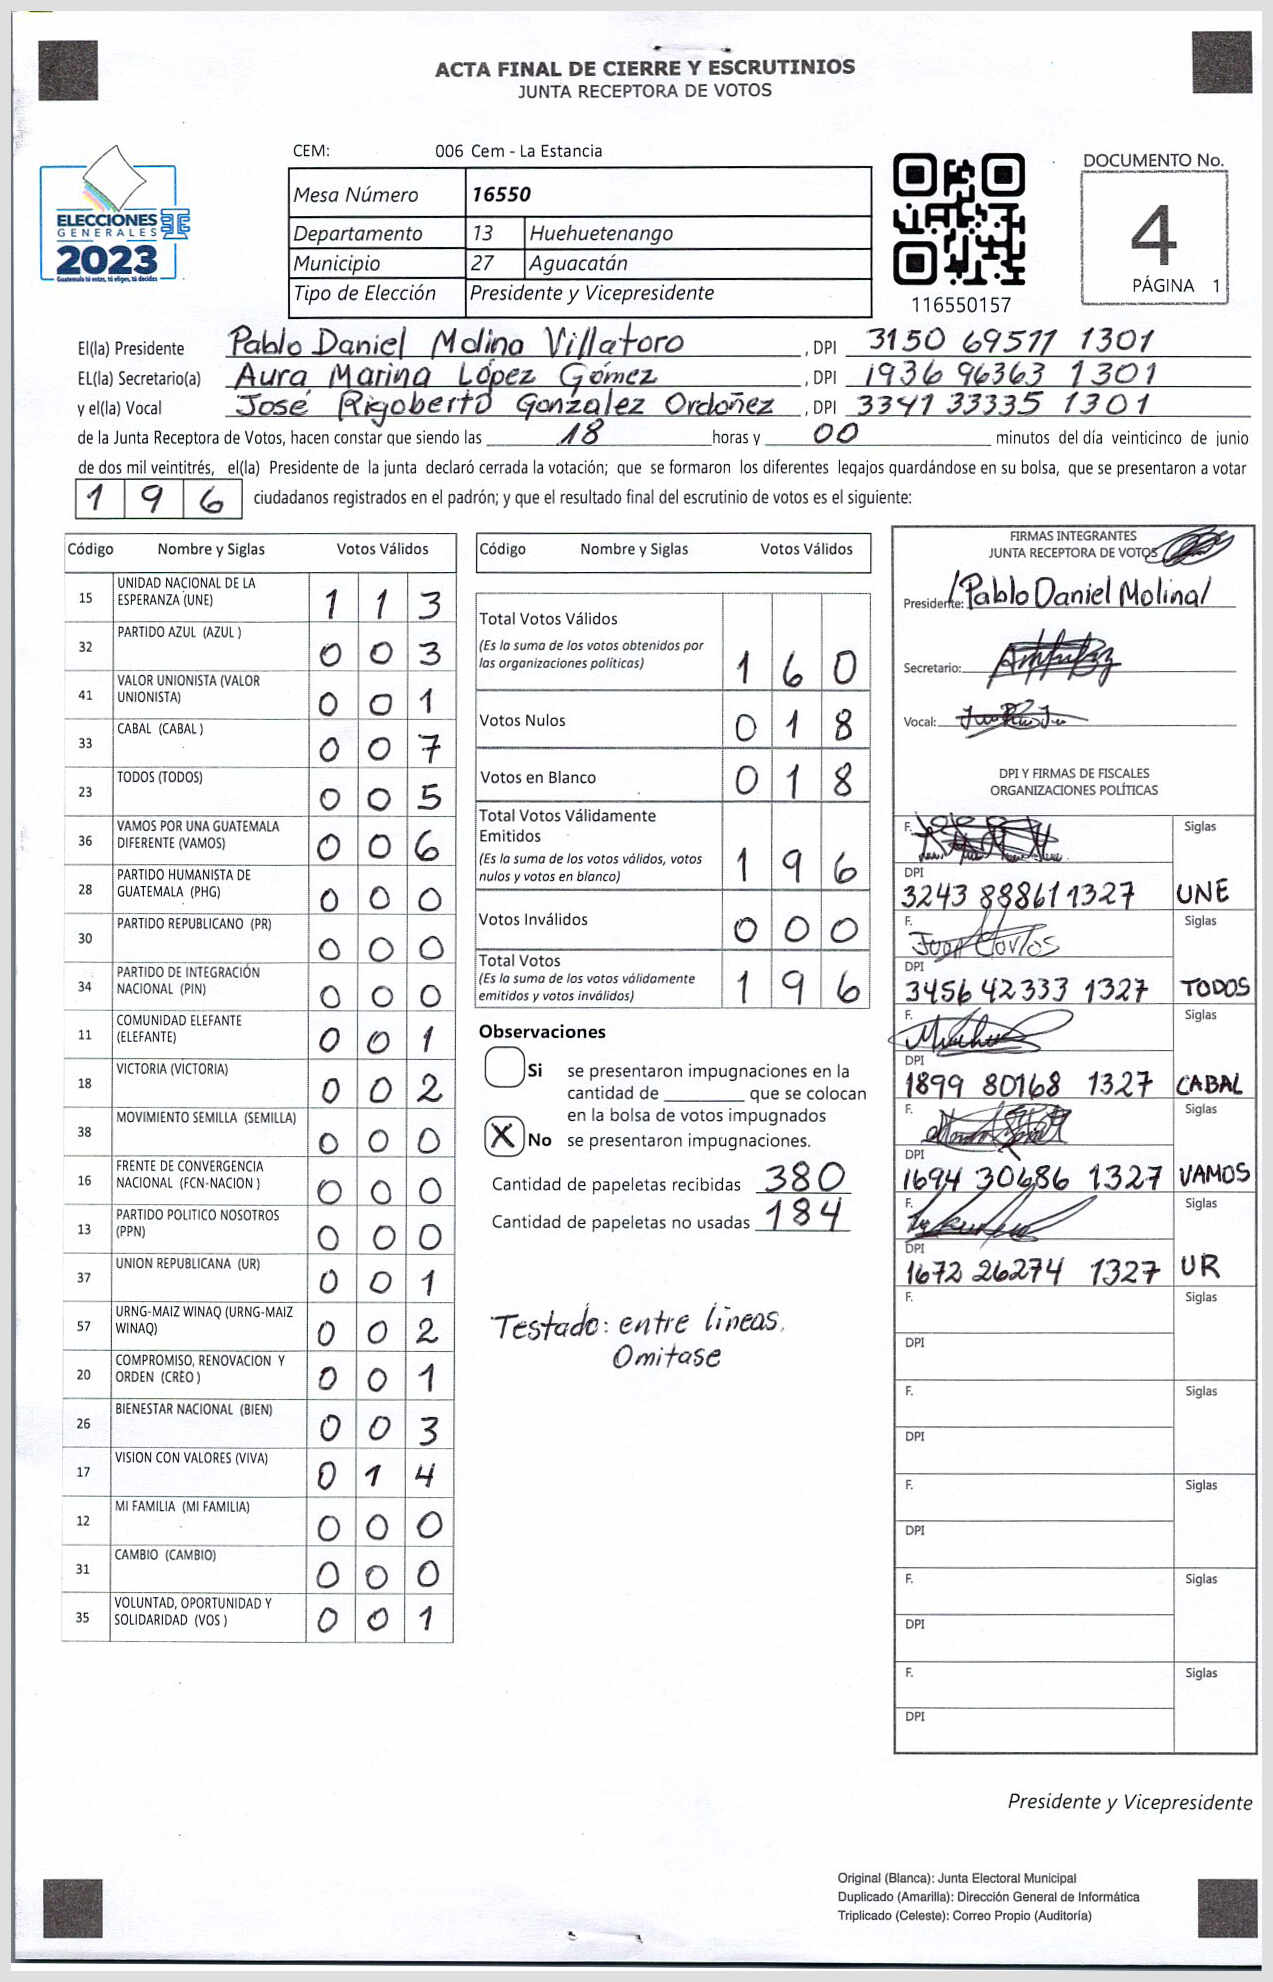 ACTA FINAL DE CIERRE Y ESCRUTINIOS
JUNTA RECEPTORA DE VOTOS
CEM: 006 Cem - La Estancia
ELECCIONES
GENERALES
2023
Guatemala tú votas, tú eliges, tú decides
Mesa Número 16550
Departamento 13 Huehuetenango
Municipio 27 Aguacatán
Tipo de Elección Presidente y Vicepresidente
116550157
DOCUMENTO No.
4
PÁGINA 1
El(la) Presidente Pablo Daniel Molino Villatoro , DPI 3150 69577 1301
EL(la) Secretario(a) Aura Marina López Gómez , DPI 1936 96363 1301
y el(la) Vocal José Rigoberto Gonzalez Ordoñez , DPI 3341 33335 1301
de la Junta Receptora de Votos, hacen constar que siendo las 18 horas y 00 minutos del día veinticinco de junio
de dos mil veintitrés, el(la) Presidente de la junta declaró cerrada la votación; que se formaron los diferentes legajos quardándose en su bolsa, que se presentaron a votar
196 ciudadanos registrados en el padrón; y que el resultado final del escrutinio de votos es el siguiente:
Código Nombre y Siglas Votos Válidos
15 UNIDAD NACIONAL DE LA ESPERANZA (UNE) 1 1 3
32 PARTIDO AZUL (AZUL ) 0 0 3
41 VALOR UNIONISTA (VALOR UNIONISTA) 0 0 1
33 CABAL (CABAL ) 0 0 7
23 TODOS (TODOS) 0 0 5
36 VAMOS POR UNA GUATEMALA DIFERENTE (VAMOS) 0 0 6
28 PARTIDO HUMANISTA DE GUATEMALA (PHG) 0 0 0
30 PARTIDO REPUBLICANO (PR) 0 0 0
34 PARTIDO DE INTEGRACIÓN NACIONAL (PIN) 0 0 0
11 COMUNIDAD ELEFANTE (ELEFANTE) 0 0 1
18 VICTORIA (VICTORIA) 0 0 2
38 MOVIMIENTO SEMILLA (SEMILLA) 0 0 0
16 FRENTE DE CONVERGENCIA NACIONAL (FCN-NACION ) 0 0 0
13 PARTIDO POLITICO NOSOTROS (PPN) 0 0 0
37 UNION REPUBLICANA (UR) 0 0 1
57 URNG-MAIZ WINAQ (URNG-MAIZ WINAQ) 0 0 2
20 COMPROMISO, RENOVACION Y ORDEN (CREO ) 0 0 1
26 BIENESTAR NACIONAL (BIEN) 0 0 3
17 VISION CON VALORES (VIVA) 0 1 4
12 MI FAMILIA (MI FAMILIA) 0 0 0
31 CAMBIO (CAMBIO) 0 0 0
35 VOLUNTAD, OPORTUNIDAD Y SOLIDARIDAD (VOS ) 0 0 1
Código Nombre y Siglas Votos Válidos
Total Votos Válidos
(Es la suma de los votos obtenidos por
las organizaciones políticas) 1 6 0
Votos Nulos 0 1 8
Votos en Blanco 0 1 8
Total Votos Válidamente
Emitidos
(Es la suma de los votos válidos, votos
nulos y votos en blanco) 1 9 6
Votos Inválidos 0 0 0
Total Votos
(Es la suma de los votos válidamente
emitidos y votos inválidos) 1 9 6
Observaciones
Si se presentaron impugnaciones en la
cantidad de ________ que se colocan
en la bolsa de votos impugnados
X No se presentaron impugnaciones.
Cantidad de papeletas recibidas 380
Cantidad de papeletas no usadas 184
Testado: entre lineas.
Omitase
FIRMAS INTEGRANTES
JUNTA RECEPTORA DE VOTOS
Presidente: Pablo Daniel Molina
Secretario:
Vocal:
DPI Y FIRMAS DE FISCALES
ORGANIZACIONES POLÍTICAS
F. Siglas
DPI
3243 88861 1327 UNE
F. Juan Carlos Siglas
DPI
3456 42333 1327 TODOS
F. Siglas
DPI
1899 80168 1327 CABAL
F. Siglas
DPI
1694 30686 1327 VAMOS
F. Siglas
DPI
1672 26274 1327 UR
F. Siglas
DPI
F. Siglas
DPI
F. Siglas
DPI
F. Siglas
DPI
F. Siglas
DPI
Presidente y Vicepresidente
Original (Blanca): Junta Electoral Municipal
Duplicado (Amarilla): Dirección General de Informática
Triplicado (Celeste): Correo Propio (Auditoría)